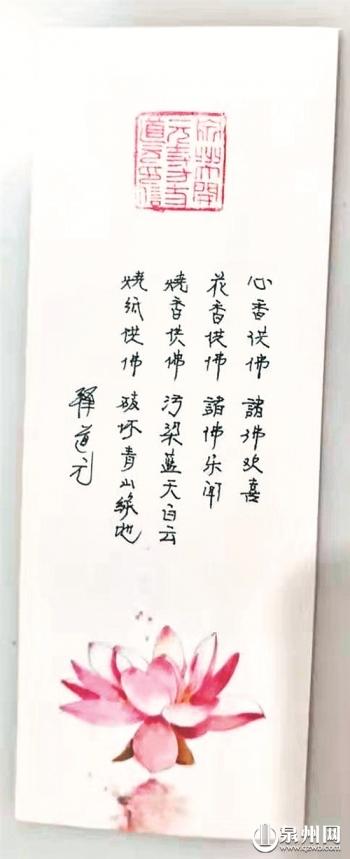 心香供佛 諸佛欢喜
花香供佛 諸佛乐闻
燒香供佛 污染藍天白云
燒纸供佛 破坏青山綠地
釋道元
泉州网
www.qzwb.com